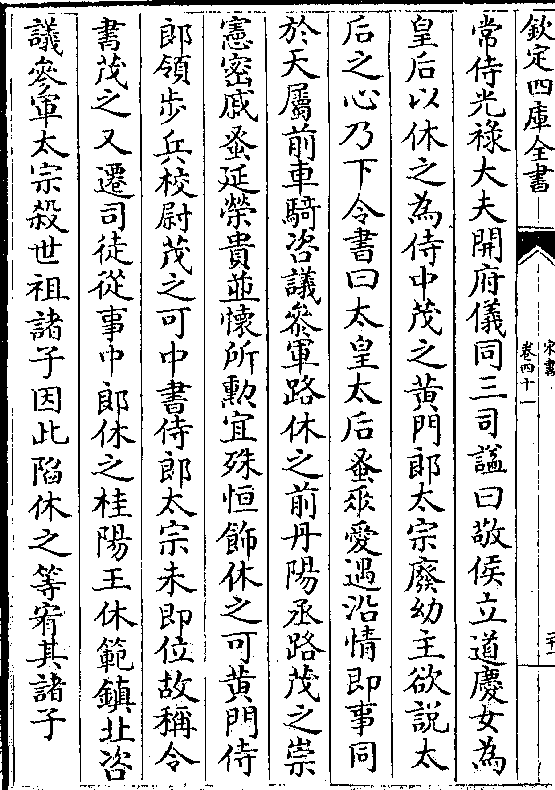 欽定四庫全書
宋書
卷四十一
常侍光祿大夫開府儀同三司諡曰敬侯立道慶女為
皇后以休之為侍中茂之黃門郎太宗廢幼主欲說太
后之心乃下令書曰太皇太后蚤垂愛遇沿情即事同
於天屬前車騎咨議參軍路休之前丹陽丞路茂之崇
憲密戚蚤延榮貴並懷所勳宜殊恒飾休之可黃門侍
郎領步兵校尉茂之可中書侍郎太宗未即位故稱令
書茂之又遷司徒從事中郎休之桂陽王休範鎮北咨
議參軍太宗殺世祖諸子因此陷休之等宥其諸子